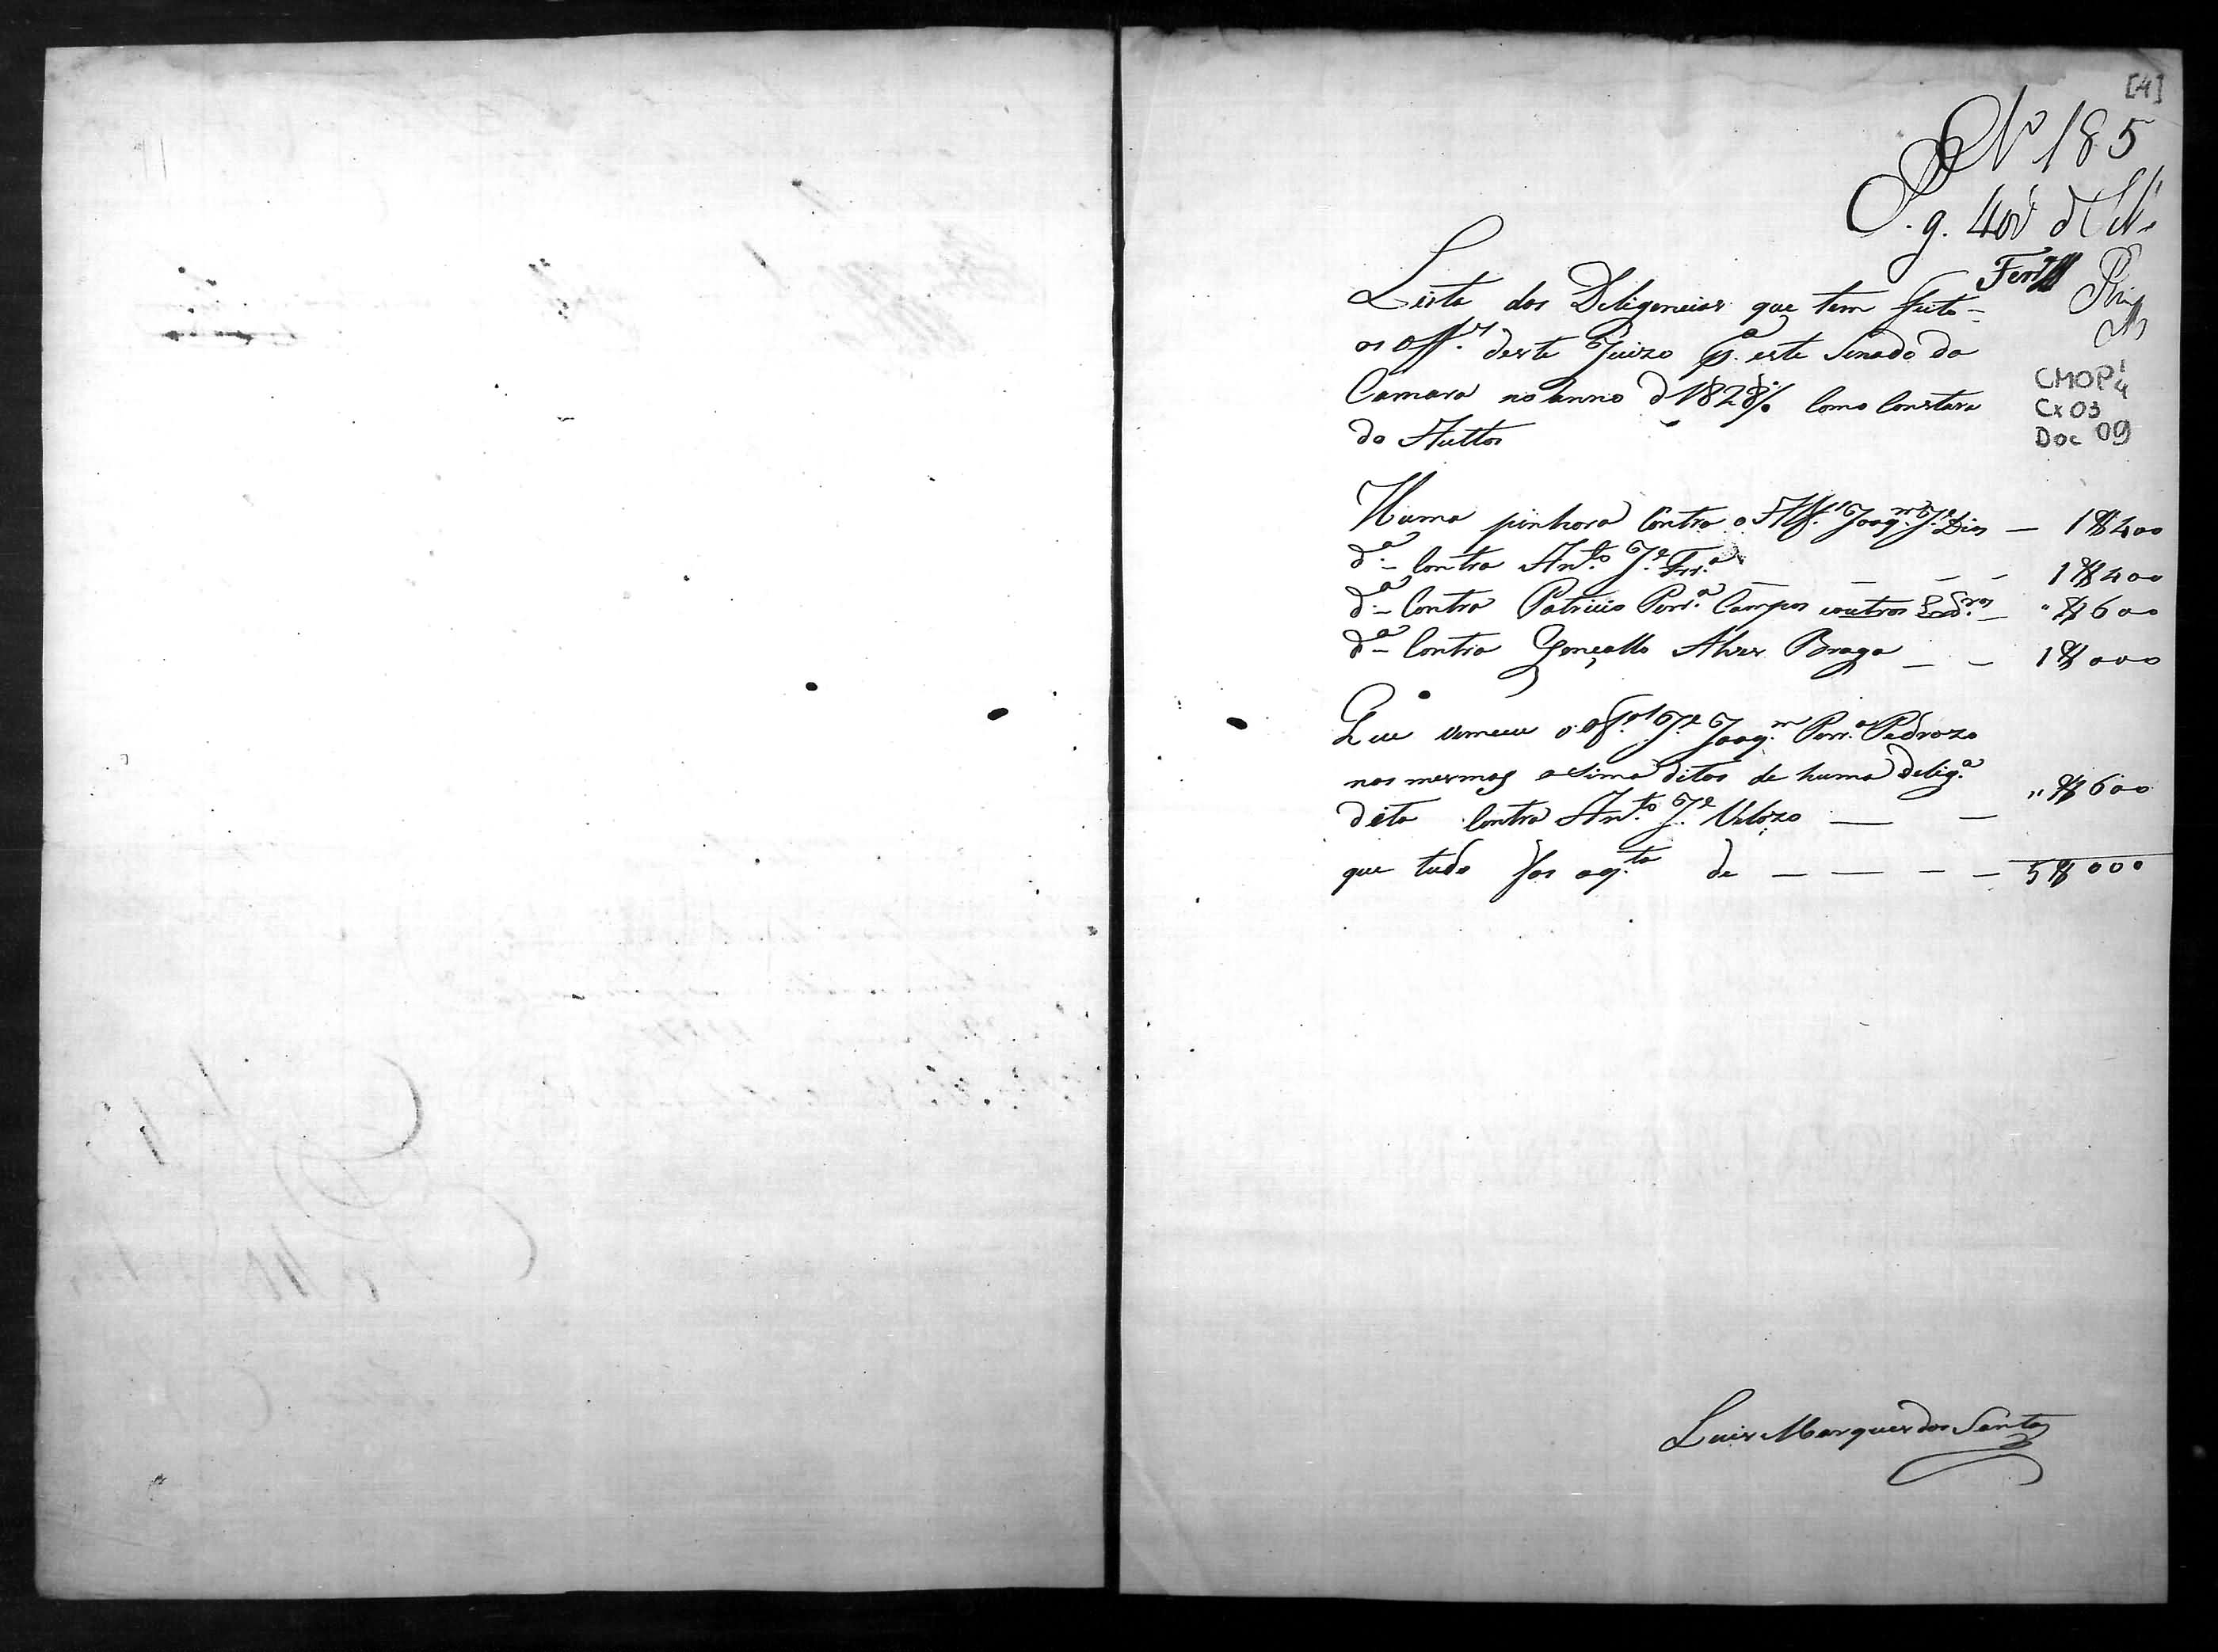 [4]
Nº 185
P. g. 40v
Lista das Deligencias que tem feito
os Off.es deste Juizo p.a este Senado da
Camara no anno d 1828 Como Constara
do Auttos
CMOP
Cx 03
Doc 09
Huma pinhora Contra o Alf.s Joaq.m J.e Dias — 1$400
d.a Contra Ant.o J.e Frr.a — — — 1$400
d.a Contra Patricio Perr.a Campos eoutros Erd.ros — "$600
d.a Contra Gonçallo Alves Braga — — 1$000
Que venceu o Of.al J.e Joaq.m Perr.a Pedrozo
nas mermas asima ditas de huma Delig.a
dita Contra Ant.o J.e Velozo — — "$600
que tudo fas aq.ta de — — — — 5$000
Luis Marques dos Santos